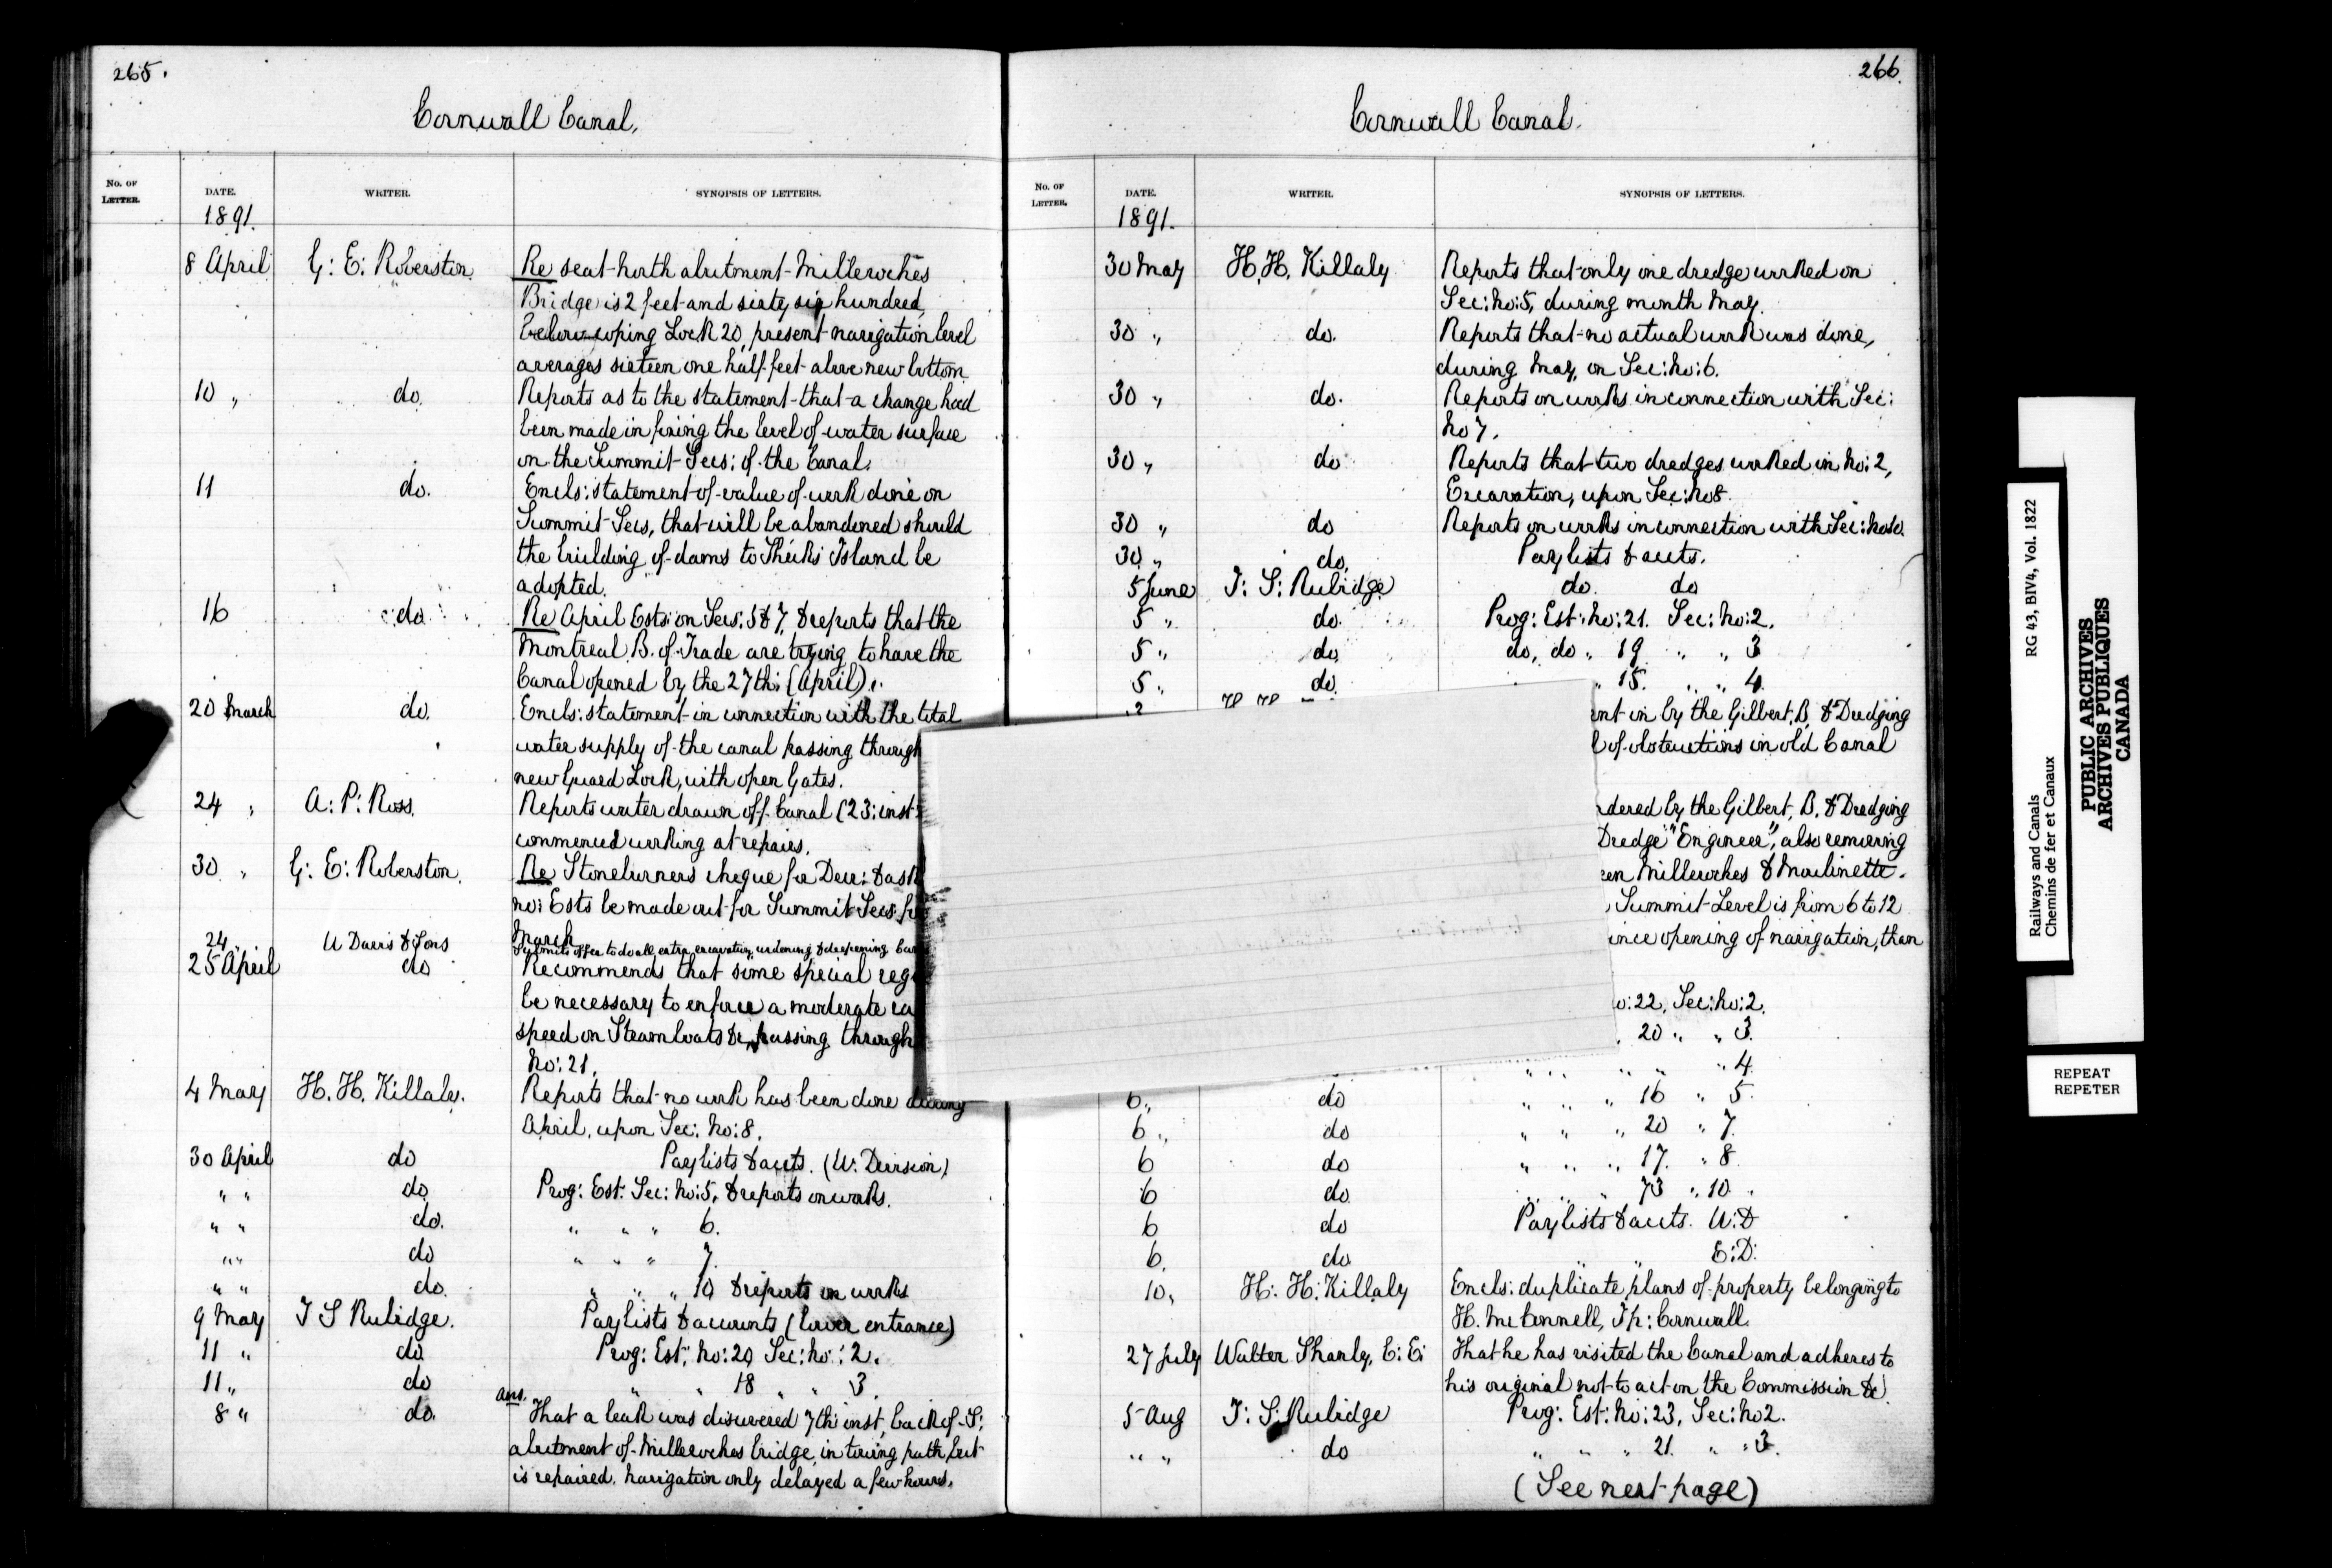 265.
Cornwall Canal.
No. OF LETTER. DATE. WRITER. SYNOPSIS OF LETTERS.
1891.
8 April G: E: Roberston Re seat north abutment Milleroches
Bridge is 2 feet and sixty six hundred,
below coping Lock 20, present navigation level
averages sixteen one half feet above new bottom
10 " do. Reports as to the statement that a change had
been made in fixing the level of water surface
on the Summit Secs: of the Canal.
11 do. Encls: statement of value of work done on
Summit Secs, that will be abandoned should
the building of dams to Shieks Island be
adopted.
16 do Re April Ests: on Secs: 5 & 7, & reports that the
Montreal B. of Trade are trying to have the
Canal opened by the 27th: (April).
20 March do. Encls: statement in connection with the total
water supply of the canal passing through
new Guard Lock, with open Gates.
24 " A: P: Ross. Reports water drawn off Canal (23: inst:
commenced working at repairs.
30 " G: E: Roberston. Re Stoneburners cheque for Decr: & ask
no: Ests be made out for Summit Secs:
March
24 " W Davis & Sons Submits offer to do all extra excavation, widening & deepening
25 April do Recommends that some special
be necessary to enforce a moderate
speed on Steamboats &c, passing through
No: 21.
4 May H. H. Killaly. Reports that no work has been done during
April, upon Sec: No: 8.
30 April do Paylists & accts. (W: Division)
" " do Prog: Est: Sec: No: 5, & reports on works.
" " do. " " " 6.
" " do " " " 7.
" " do. " " " 10 & reports on works
9 May T S Rubidge. Paylists & accounts (lower entrance)
11 " do Prog: Est: No: 20 Sec: No: 2.
11 " do " " 18 " " 3.
ans.
8 " do. That a leak was discovered 7th inst, back of S:
abutment of Milleroches bridge, in towing path, but
is repaired. Navigation only delayed a few hours.
266.
Cornwall Canal.
No. OF LETTER. DATE. WRITER. SYNOPSIS OF LETTERS.
1891.
30 May H. H. Killaly Reports that only one dredge worked on
Sec: No: 5, during month May.
30 " do. Reports that no actual work was done,
during May, on Sec: No: 6.
30 " do. Reports on works in connection with Sec:
No 7.
30 " do Reports that two dredges worked in No: 2,
Excavation, upon Sec: No 8.
30 " do Reports on works in connection with Sec: No 10.
30 " do. Paylists & accts.
5 June T: S: Rubidge do. do
5 " do. Prog: Est: No: 21. Sec: No: 2.
5 " do, do, do " 19 " " 3
5 " do. " 15. " " 4.
in by the Gilbert, B. & Dredging
of obstructions in old Canal
by the Gilbert, B. & Dredging
Dredge "Engineer", also removing
Milleroches & Moulinette.
Summit Level is from 6 to 12
opening of navigation, than
22, Sec: No: 2.
20 " " 3.
" " " " 4.
6 " do " " " 16 " 5.
6 " do " " " 20 " 7.
6 do " " " 17. " 8.
6 do " " " 73 " 10.
6 do Paylists & accts. W: D
6. do " " E: D:
10 " H: H: Killaly Encls: duplicate plans of property belonging to
H. McConnell, Tp: Cornwall.
27 July Walter Shanly, C: E: That he has visited the Canal and adheres to
his original not to act on the Commission &c.
5 Aug T: S: Rubidge Prog: Est: No: 23, Sec: No 2.
" " do " " " 21. " " 3.
(See next page)
RG 43, BIV4, Vol. 1822
Railways and Canals
Chemins de fer et Canaux
PUBLIC ARCHIVES
ARCHIVES PUBLIQUES
CANADA
REPEAT
REPETER